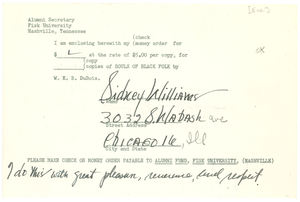 Alumni Secretary
Fisk University
Nashville, Tennessee
(check
I am enclosing herewith my (money order for
$ at the rate of $5.00 per copy, for
(copy
(copies of SOULS OF BLACK FOLK by
W. E. B. DuBois.
Sidney Williams
Name
3032 S. Wabash ave
Street Address
Chicago 16, Ill
City and State
PLEASE MAKE CHECK OR MONEY ORDER PAYABLE TO ALUMNI FUND, FISK UNIVERSITY, (NASHVILLE)
I do this with great pleasure, reverence, and respect.